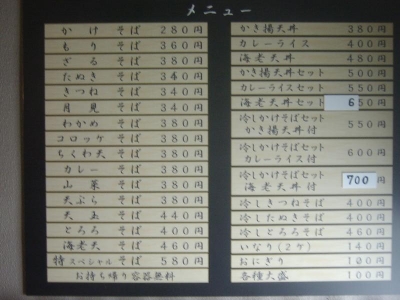 メニュー
かけそば 280円
もりそば 360円
ざるそば 380円
たぬきそば 340円
きつねそば 340円
月見そば 340円
わかめそば 380円
コロッケそば 380円
ちくわ天そば 380円
カレーそば 380円
山菜そば 380円
天ぷらそば 380円
天玉そば 440円
とろろそば 400円
海老天そば 460円
特スペシャルそば 580円
お持ち帰り容器無料
かき揚天丼 380円
カレーライス 400円
海老天丼 480円
かき揚天丼セット 500円
カレーライスセット 550円
海老天丼セット 650円
冷しかけそばセット
かき揚天丼付 550円
冷しかけそばセット
カレーライス付 600円
冷しかけそばセット
海老天丼付 700円
冷しきつねそば 400円
冷したぬきそば 400円
冷しとろろそば 460円
いなり(2ケ) 140円
おにぎり 100円
各種大盛 100円